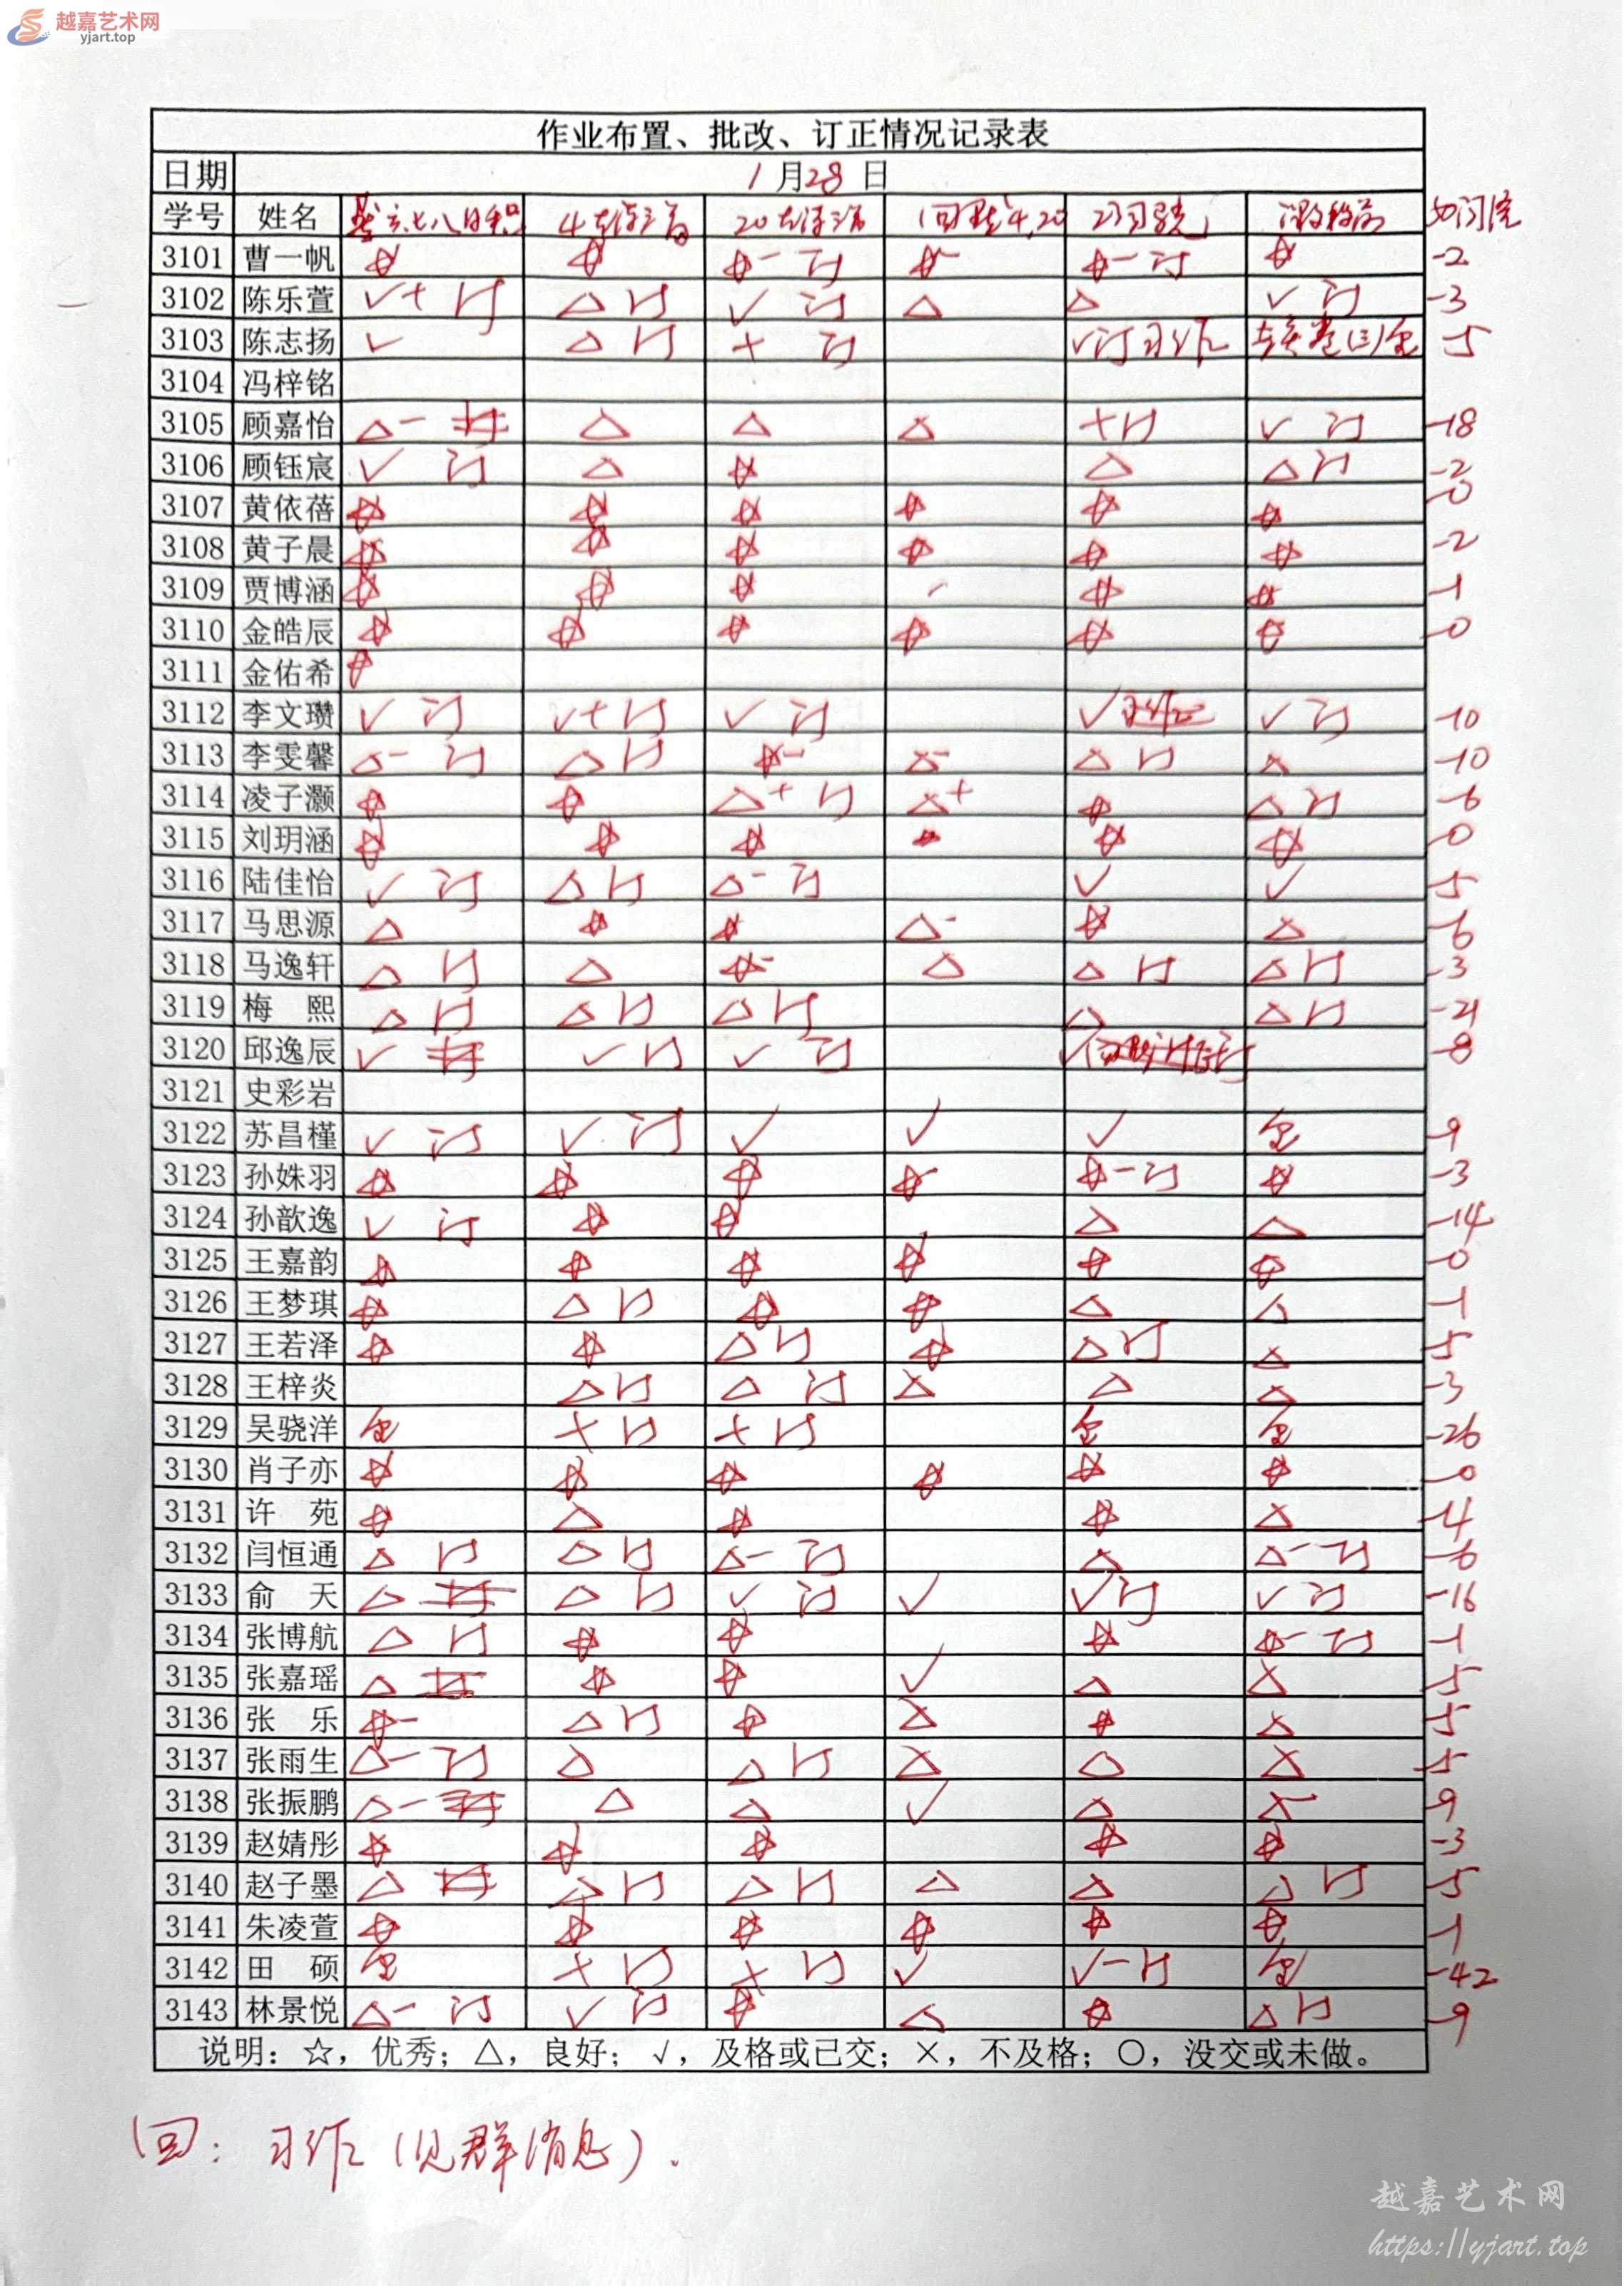 越嘉艺术网
yjart.top
作业布置、批改、订正情况记录表
日期 1月28日
学号 姓名
3101 曹一帆 ☆ ☆ ☆- 订 ☆- ☆- 订 ☆ -2
3102 陈乐萱 √+ 订 △ 订 √ 订 △ △ √ 订 -3
3103 陈志扬 √ △ 订 + 订 √订 习作 -5
3104 冯梓铭
3105 顾嘉怡 △- 订 △ △ △ +订 √ 订 -18
3106 顾钰宸 √ 订 △ ☆ △ △订 -2
3107 黄依蓓 ☆ ☆ ☆ ☆ ☆ ☆ -0
3108 黄子晨 ☆ ☆ ☆ ☆ ☆ ☆ -2
3109 贾博涵 ☆ ☆ ☆ ☆ ☆ -1
3110 金皓辰 ☆ ☆ ☆ ☆ ☆ ☆ -0
3111 金佑希
3112 李文瓒 √ 订 √+ 订 √ 订 √ 习作 √ 订 -10
3113 李雯馨 △- 订 △ 订 ☆- △- △ 订 △ -10
3114 凌子灏 ☆ ☆ △+ 订 △+ ☆ △ 订 -6
3115 刘玥涵 ☆ ☆ ☆ ☆ ☆ ☆ -0
3116 陆佳怡 √ 订 △ 订 △- 订 √ √ -5
3117 马思源 △ ☆ ☆ △- ☆ △ -6
3118 马逸轩 △ 订 △ ☆- △ △ 订 △ 订 -3
3119 梅 熙 △ 订 △ 订 △ 订 △ △ 订 -21
3120 邱逸辰 √ 订 √ 订 √ 订 -8
3121 史彩岩
3122 苏昌槿 √ 订 √ 订 √ √ √ -9
3123 孙姝羽 ☆ ☆ ☆ ☆- ☆- 订 ☆ -3
3124 孙歆逸 √ 订 ☆ ☆ △ △ -14
3125 王嘉韵 ☆ ☆ ☆ ☆ ☆ ☆ -0
3126 王梦琪 ☆ △ 订 ☆ ☆ △ △ -1
3127 王若泽 ☆ ☆ △ 订 ☆ △ 订 △ -5
3128 王梓炎 △订 △ 订 △ △ △ -3
3129 吴骁洋 + 订 + 订 -26
3130 肖子亦 ☆ ☆ ☆ ☆ ☆ ☆ -0
3131 许 苑 ☆ △ ☆ ☆ △ -4
3132 闫恒通 △ 订 △ 订 △- 订 △ △- 订 -6
3133 俞 天 △ 订 △ 订 √ 订 √ √订 √ 订 -16
3134 张博航 △ 订 ☆ ☆ ☆ ☆- 订 -1
3135 张嘉瑶 △ 订 ☆ ☆ √ △ △ -5
3136 张 乐 ☆- △ 订 ☆ △ ☆ △ -5
3137 张雨生 △- 订 △ △ 订 △ △ △ -5
3138 张振鹏 △- 订 △ △ √ △ △- -9
3139 赵婧彤 ☆ ☆ ☆ ☆ ☆ -3
3140 赵子墨 △ 订 △ 订 △ 订 △ △ △ 订 -5
3141 朱凌萱 ☆ ☆ ☆ ☆ ☆ ☆ -1
3142 田 硕 + 订 + 订 √ √- 订 -42
3143 林景悦 △- 订 √ 订 ☆ △ ☆ △ 订 -9
说明：☆，优秀；△，良好；√，及格或已交；×，不及格；○，没交或未做。
回：习作（见群消息）.
越嘉艺术网
https://yjart.top